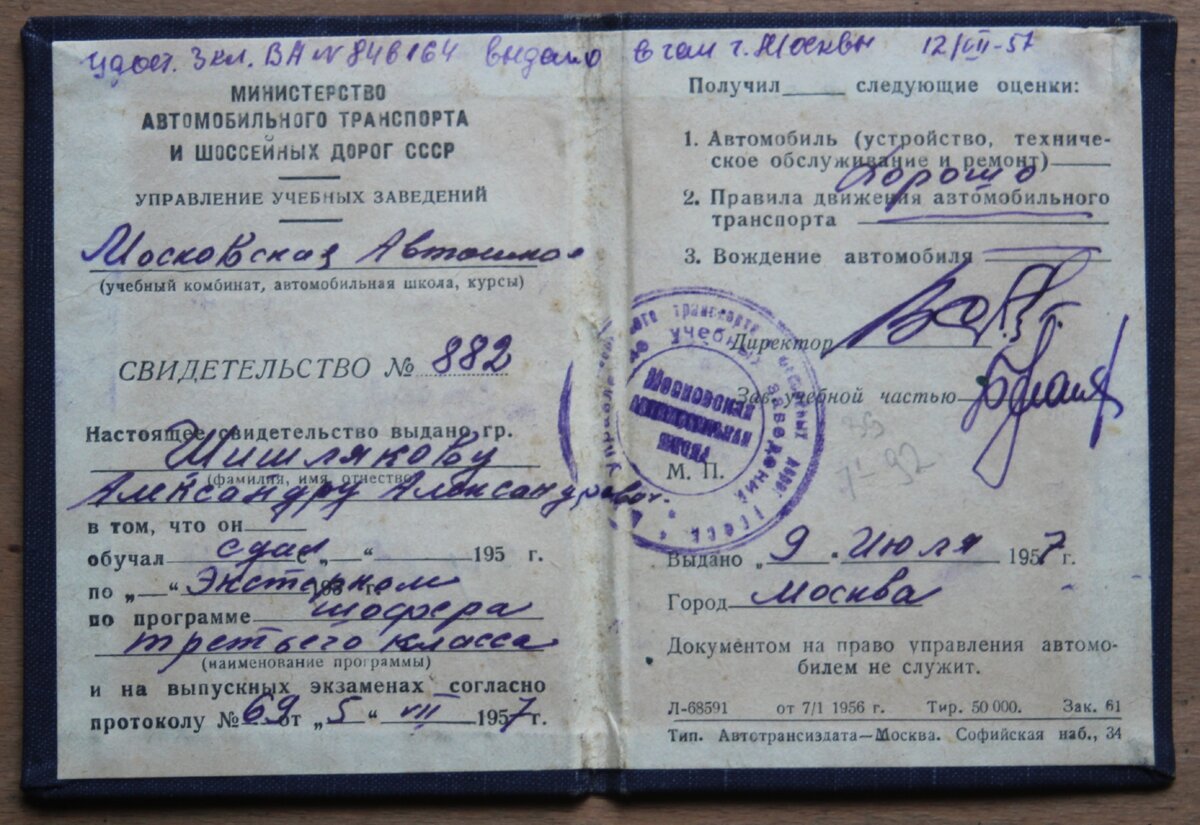 Удост. 3 кл. ВА № 846164 выдано в ГАИ г. Москвы 12/VII-57
МИНИСТЕРСТВО
АВТОМОБИЛЬНОГО ТРАНСПОРТА
И ШОССЕЙНЫХ ДОРОГ СССР
УПРАВЛЕНИЕ УЧЕБНЫХ ЗАВЕДЕНИЙ
Московская Автошкола
(учебный комбинат, автомобильная школа, курсы)
СВИДЕТЕЛЬСТВО № 882
Настоящее свидетельство выдано гр.
Шишлякову
(фамилия, имя, отчество)
Александру Александрович.
в том, что он
обучал сдал „ “ 195 г.
по „ “ Экстерном 195 г.
по программе шофера
третьего класса
(наименование программы)
и на выпускных экзаменах согласно
протоколу № 69 от „ 5 “ VII 1957 г.
Получил следующие оценки:
1. Автомобиль (устройство, техниче-
ское обслуживание и ремонт)
Хорошо
2. Правила движения автомобильного
транспорта
3. Вождение автомобиля
Директор
Зав. учебной частью
Московская
М. П.
Выдано „ 9 “ Июля 1957 г.
Город Москва
Документом на право управления автомо-
билем не служит.
Л-68591 от 7/1 1956 г. Тир. 50 000. Зак. 61
Тип. Автотрансиздата—Москва. Софийская наб., 34